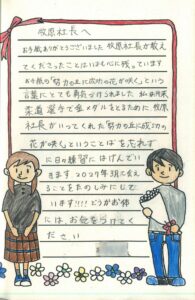 牧原社長へ
お手紙ありがとうございました 牧原社長が教え
てくださったことはいまも心に残っています
お手紙の「努力の上に成功の花が咲く」という
言葉にとても勇気づけられました 私は将来
柔道選手で金メダルをとるために牧原
社長がいってくれた「努力の上に成功の
花が咲く」ということばを忘れず
に日々練習にはげんでい
きます 2029年3月に会え
ることをたのしみにして
います!!! どうかお体
には、お気をつけてく
ださい